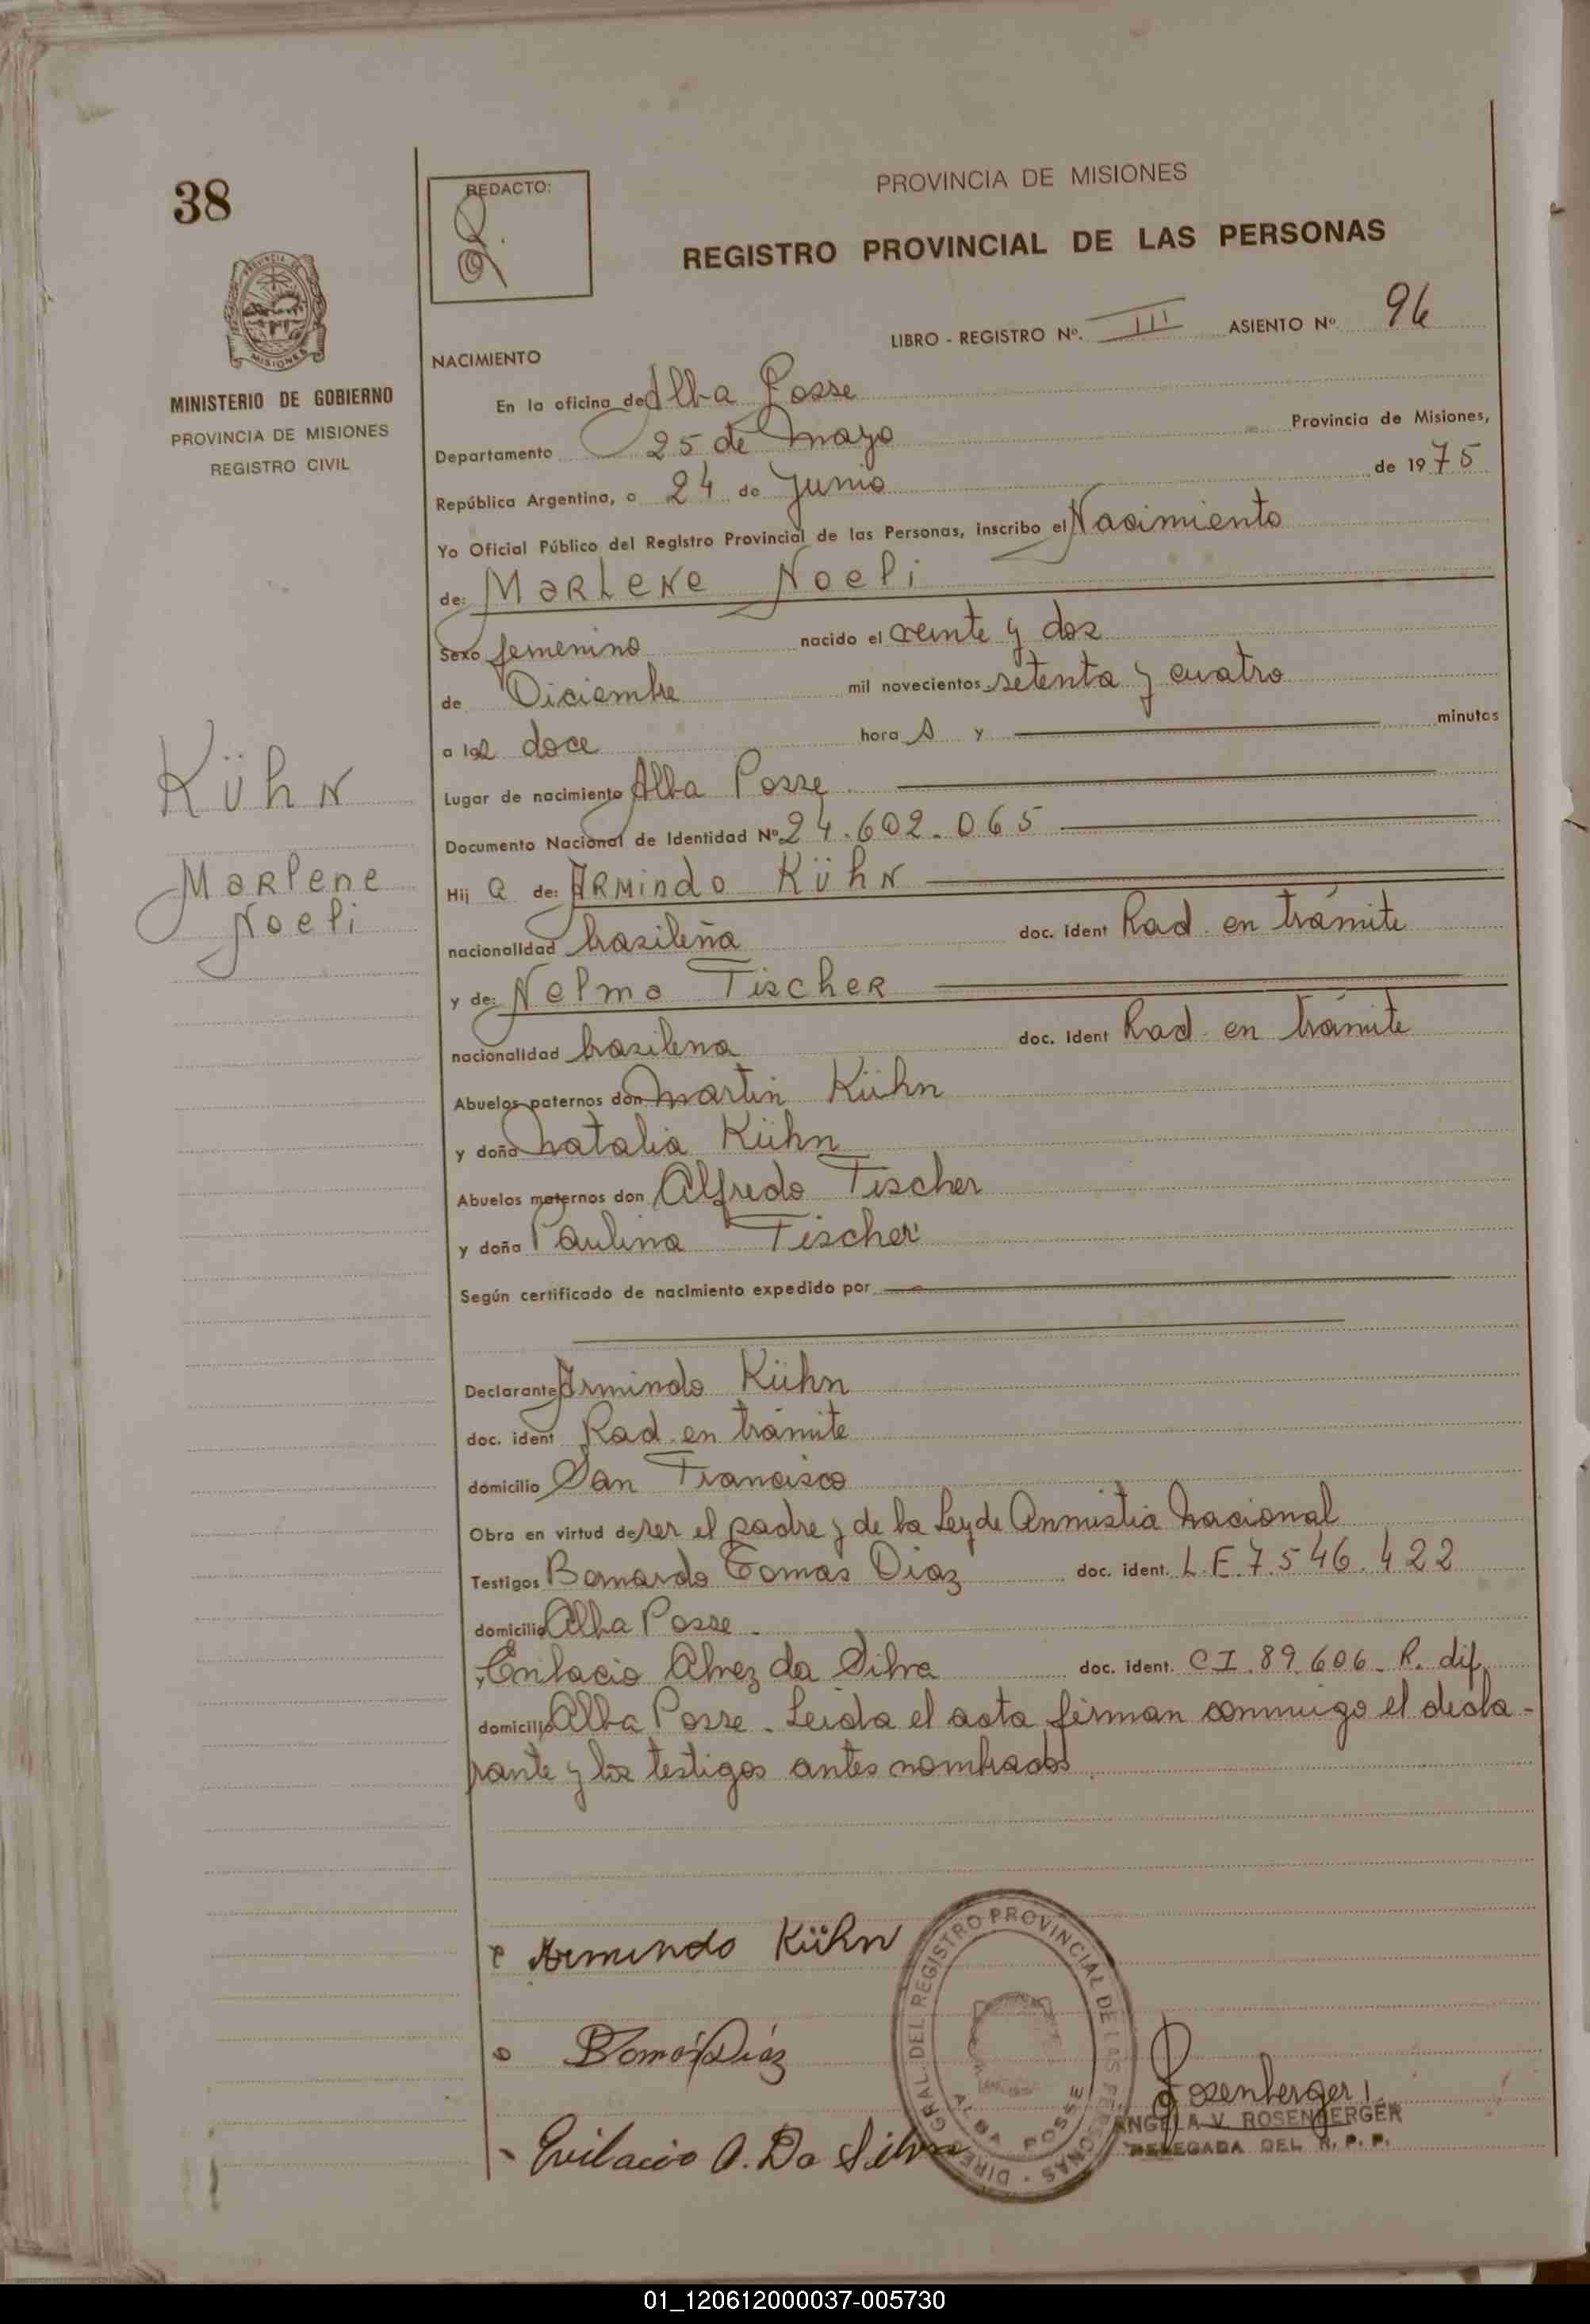 38
REDACTO:
PROVINCIA DE MISIONES
REGISTRO PROVINCIAL DE LAS PERSONAS
PROVINCIA DE
MISIONES
MINISTERIO DE GOBIERNO
PROVINCIA DE MISIONES
REGISTRO CIVIL
LIBRO - REGISTRO Nº. III ASIENTO Nº 96
NACIMIENTO
En la oficina de Alba Posse
Departamento 25 de Mayo Provincia de Misiones,
República Argentina, a 24 de Junio de 1975
Yo Oficial Público del Registro Provincial de las Personas, inscribo el Nacimiento
de: Marlene Noeli
Sexo femenino nacido el veinte y dos
de Diciembre mil novecientos setenta y cuatro
a las doce hora s y minutos
Kühn
Marlene
Noeli
Lugar de nacimiento Alba Posse.
Documento Nacional de Identidad Nº 24.602.065
Hij a de: Armindo Kühn
nacionalidad brasileña doc. ident Rad. en trámite
y de: Nelma Fischer
nacionalidad brasilena doc. ident Rad. en trámite
Abuelos paternos don Martin Kühn
y doña Natalia Kühn
Abuelos maternos don Alfredo Fischer
y doña Paulina Fischer
Según certificado de nacimiento expedido por
Declarante Armindo Kühn
doc. ident Rad. en trámite
domicilio San Francisco
Obra en virtud de ser el padre y de la Ley de Anmistia Nacional
Testigos Bernardo Tomás Diaz doc. ident. L.E.7.546.422
domicilio Alba Posse.
y Enilacio Alvez da Silva doc. ident. C I.89.606. R. dif.
domicilio Alba Posse. Leida el acta firman conmigo el decla-
rante y los testigos antes nombrados.
Armindo Kühn
B Tomás Diáz
Evilacio A. Da Silva
DIREC. GRAL. DEL REGISTRO PROVINCIAL DE LAS PERSONAS
ALBA POSSE
Rosenberger
ANGELA V. ROSENBERGER
DELEGADA DEL R. P. P.
01_120612000037-005730